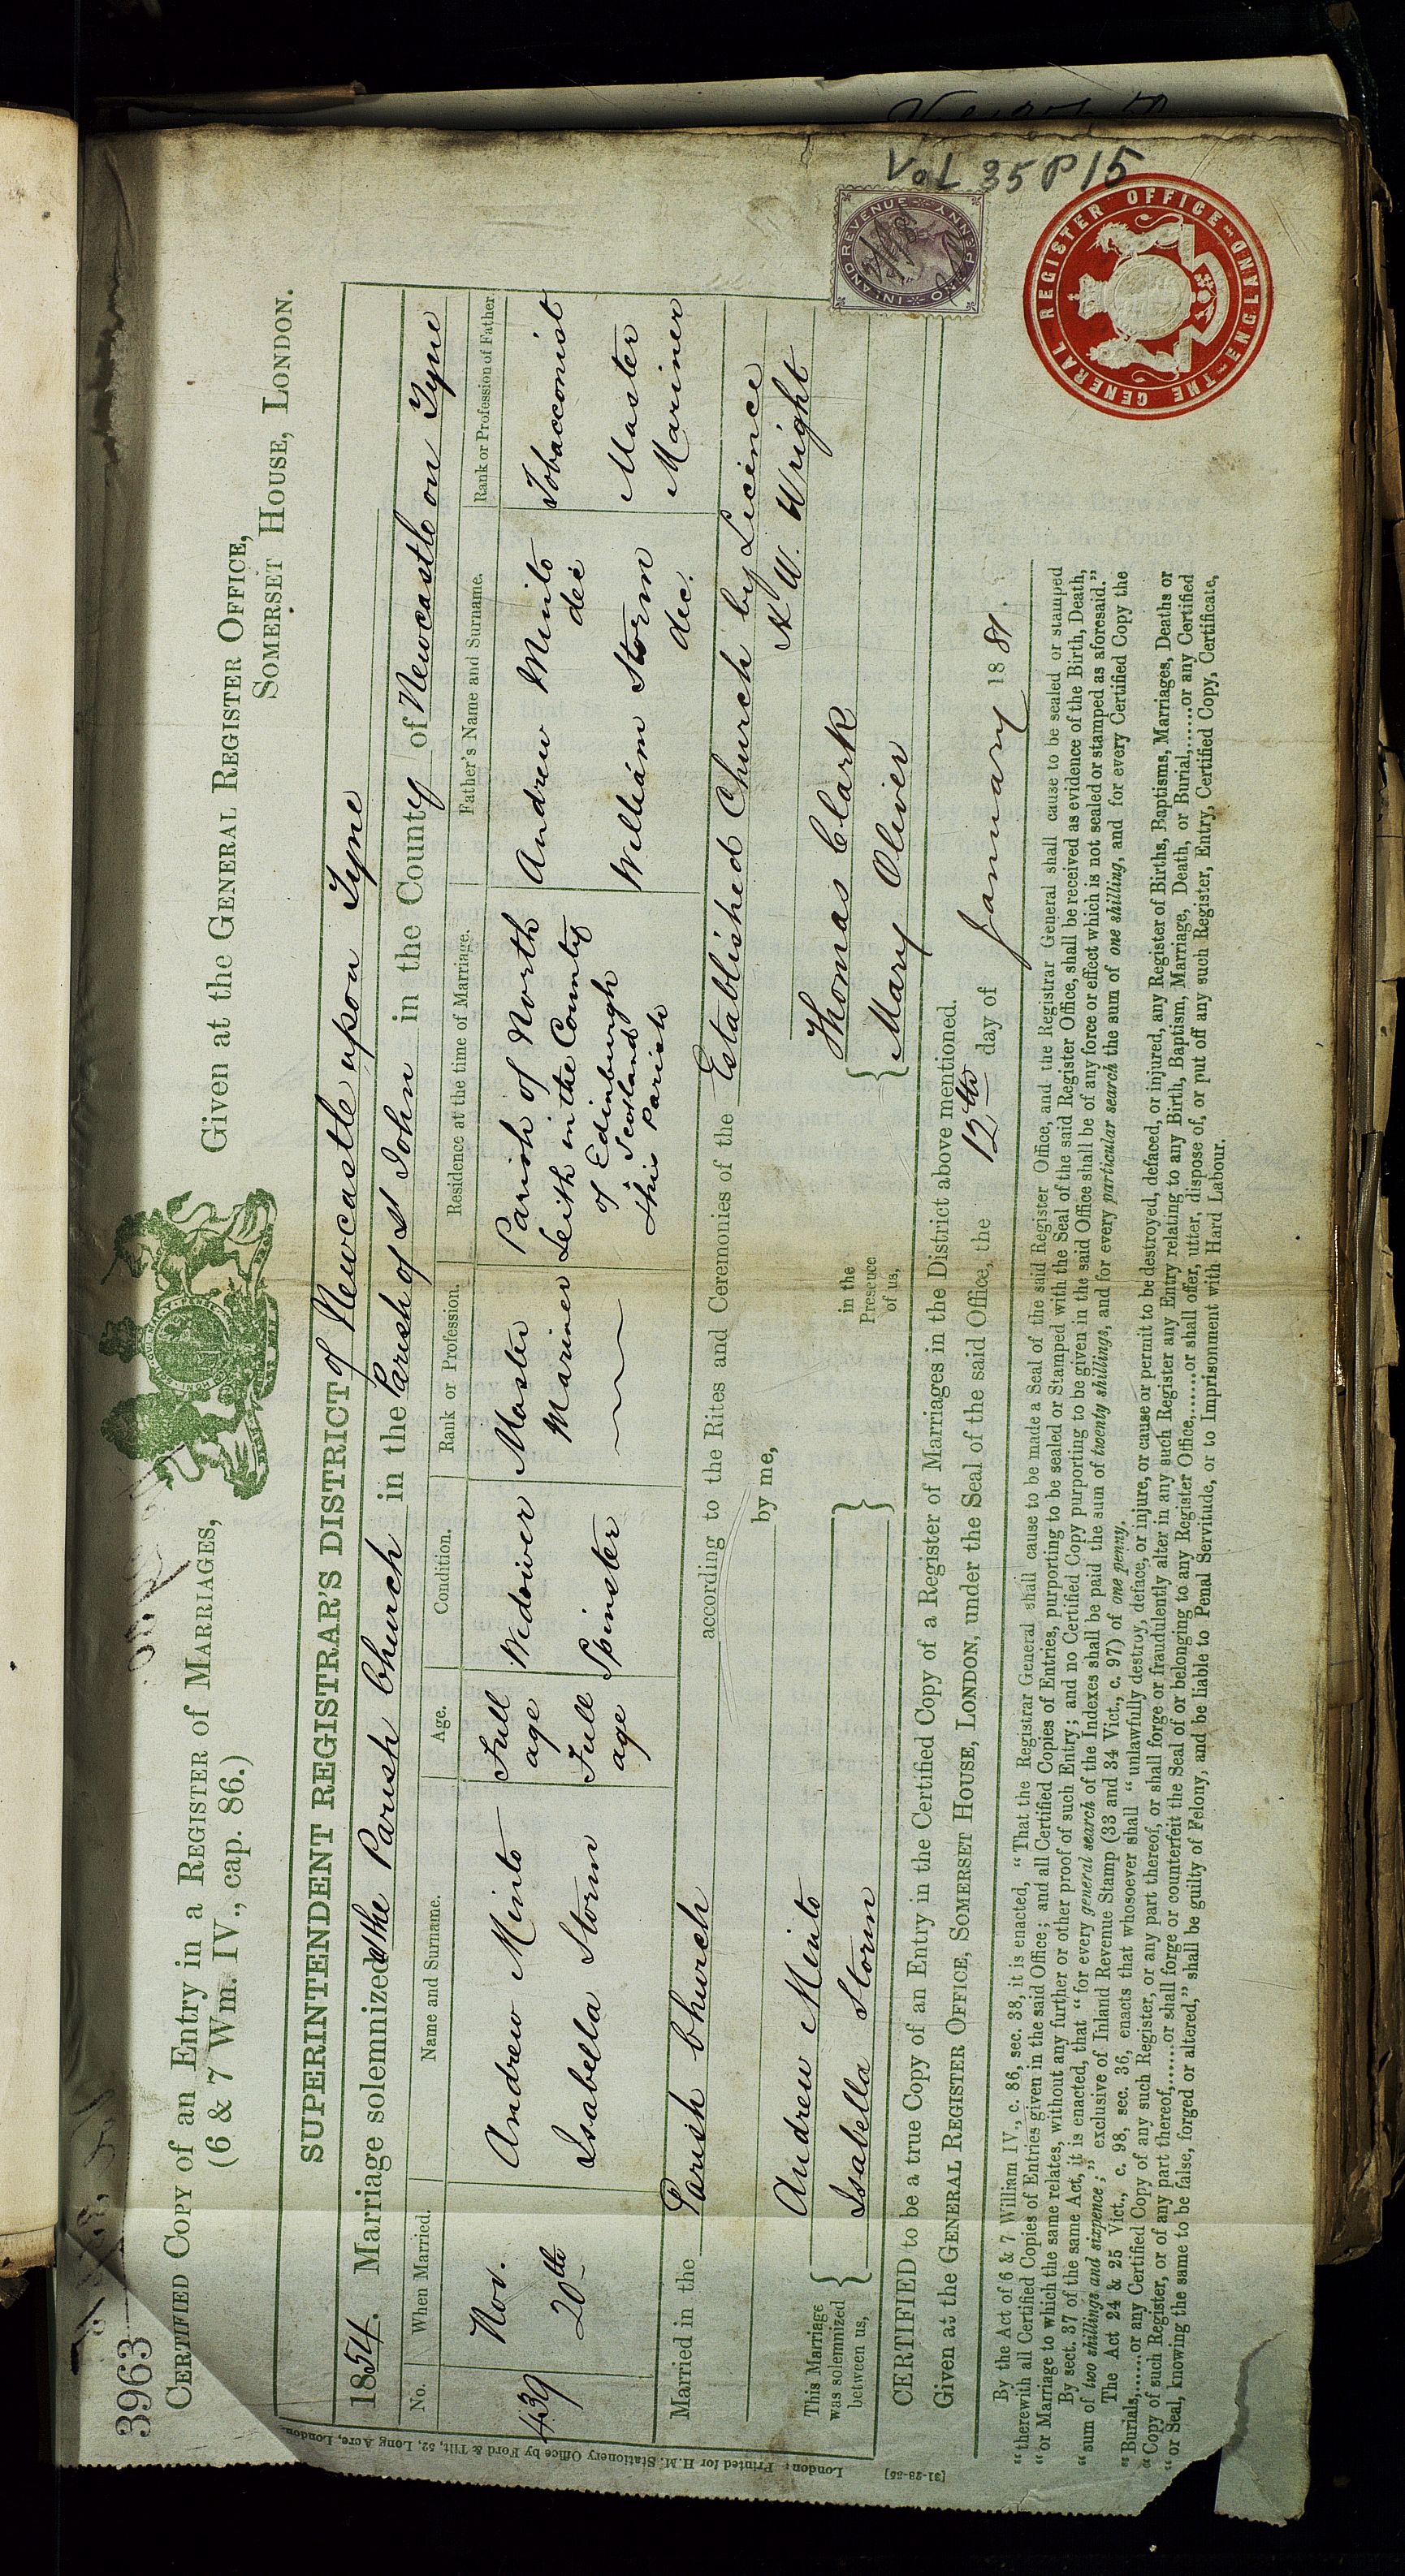 3963
CERTIFIED COPY of an Entry in a REGISTER of MARRIAGES,
(6 & 7 Wm. IV., cap. 86.)
Given at the GENERAL REGISTER OFFICE,
SOMERSET HOUSE, LONDON.
SUPERINTENDENT REGISTRAR'S DISTRICT of Newcastle upon Tyne
1854. Marriage solemnized at the Parish Church in the Parish of St John in the County of Newcastle on Tyne
No. When Married. Name and Surname. Age. Condition. Rank or Profession. Residence at the time of Marriage. Father's Name and Surname. Rank or Profession of Father
439 Nov. 20th
Andrew Minto Full age Widower Master Mariner Parish of North Leith in the County of Edinburgh Scotland Andrew Minto dec Tobacconist
Isabella Storm Full age Spinster this Parish William Storm dec. Master Mariner
Married in the Parish Church according to the Rites and Ceremonies of the Established Church by Licence
by me, W. Wright
This Marriage was solemnized between us,
Andrew Minto
Isabella Storm
in the Presence of us,
Thomas Clark
Mary Oliver
CERTIFIED to be a true Copy of an Entry in the Certified Copy of a Register of Marriages in the District above mentioned.
Given at the GENERAL REGISTER OFFICE, SOMERSET HOUSE, LONDON, under the Seal of the said Office, the 12th day of January 1881
By the Act of 6 & 7 William IV., c. 86, sec. 38, it is enacted, "That the Registrar General shall cause to be made a Seal of the said Register Office, and the Registrar General shall cause to be sealed or stamped
"therewith all Certified Copies of Entries given in the said Office; and all Certified Copies of Entries, purporting to be sealed or Stamped with the Seal of the said Register Office, shall be received as evidence of the Birth, Death,
"or Marriage to which the same relates, without any further or other proof of such Entry; and no Certified Copy purporting to be given in the said Office shall be of any force or effect which is not sealed or stamped as aforesaid."
By sect. 37 of the same Act, it is enacted, that "for every general search of the Indexes shall be paid the sum of twenty shillings, and for every particular search the sum of one shilling, and for every Certified Copy the
"sum of two shillings and sixpence;" exclusive of Inland Revenue Stamp (33 and 34 Vict., c. 97) of one penny.
The Act 24 & 25 Vict., c. 98, sec. 36, enacts that whosoever shall "unlawfully destroy, deface, or injure, or cause or permit to be destroyed, defaced, or injured, any Register of Births, Baptisms, Marriages, Deaths or
"Burials,......or any Certified Copy of any such Register, or any part thereof, or shall forge or fraudulently alter in any such Register any Entry relating to any Birth, Baptism, Marriage, Death, or Burial,......or any Certified
"Copy of such Register, or of any part thereof,......or shall forge or counterfeit the Seal of or belonging to any Register Office,......or shall offer, utter, dispose of, or put off any such Register, Entry, Certified Copy, Certificate,
"or Seal, knowing the same to be false, forged or altered," shall be guilty of Felony, and be liable to Penal Servitude, or to Imprisonment with Hard Labour.
London: Printed for H.M. Stationery Office by Ford & Tilt, 52, Long Acre, London.
[31-28-85]
VOL 35 P 15
INLAND REVENUE
ONE PENNY
THE GENERAL REGISTER OFFICE
ENGLAND